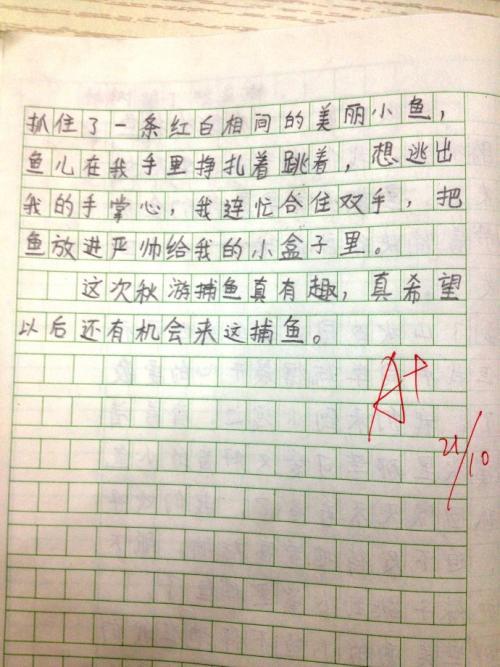 抓住了一条红白相间的美丽小鱼，
鱼儿在我手里挣扎着跳着，想逃出
我的手掌心，我连忙合住双手，把
鱼放进严帅给我的小盒子里。
这次秋游捕鱼真有趣，真希望
以后还有机会来这捕鱼。
A+
21/10